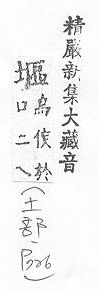 精嚴新集大藏音
塸烏侯於
口二八
(土部, B26)